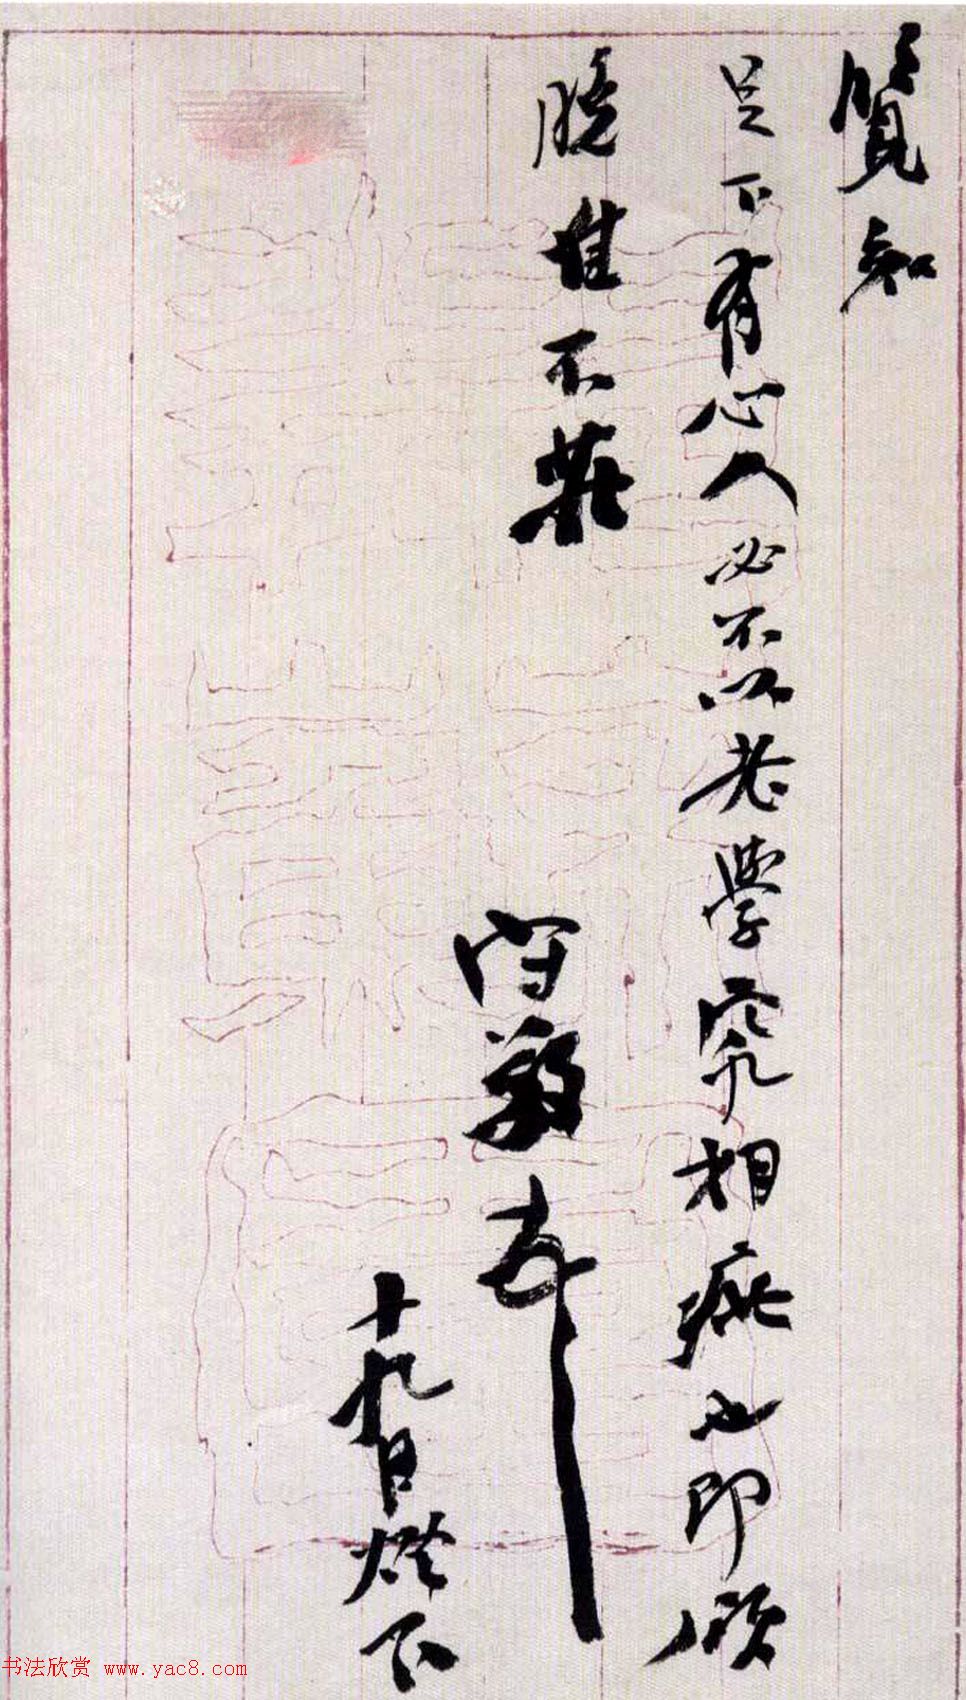 覽知
足下有心人必不以老學究相疵也即頌
曉佳不莊
守敬
十九日燈下
书法欣赏 www.yac8.com